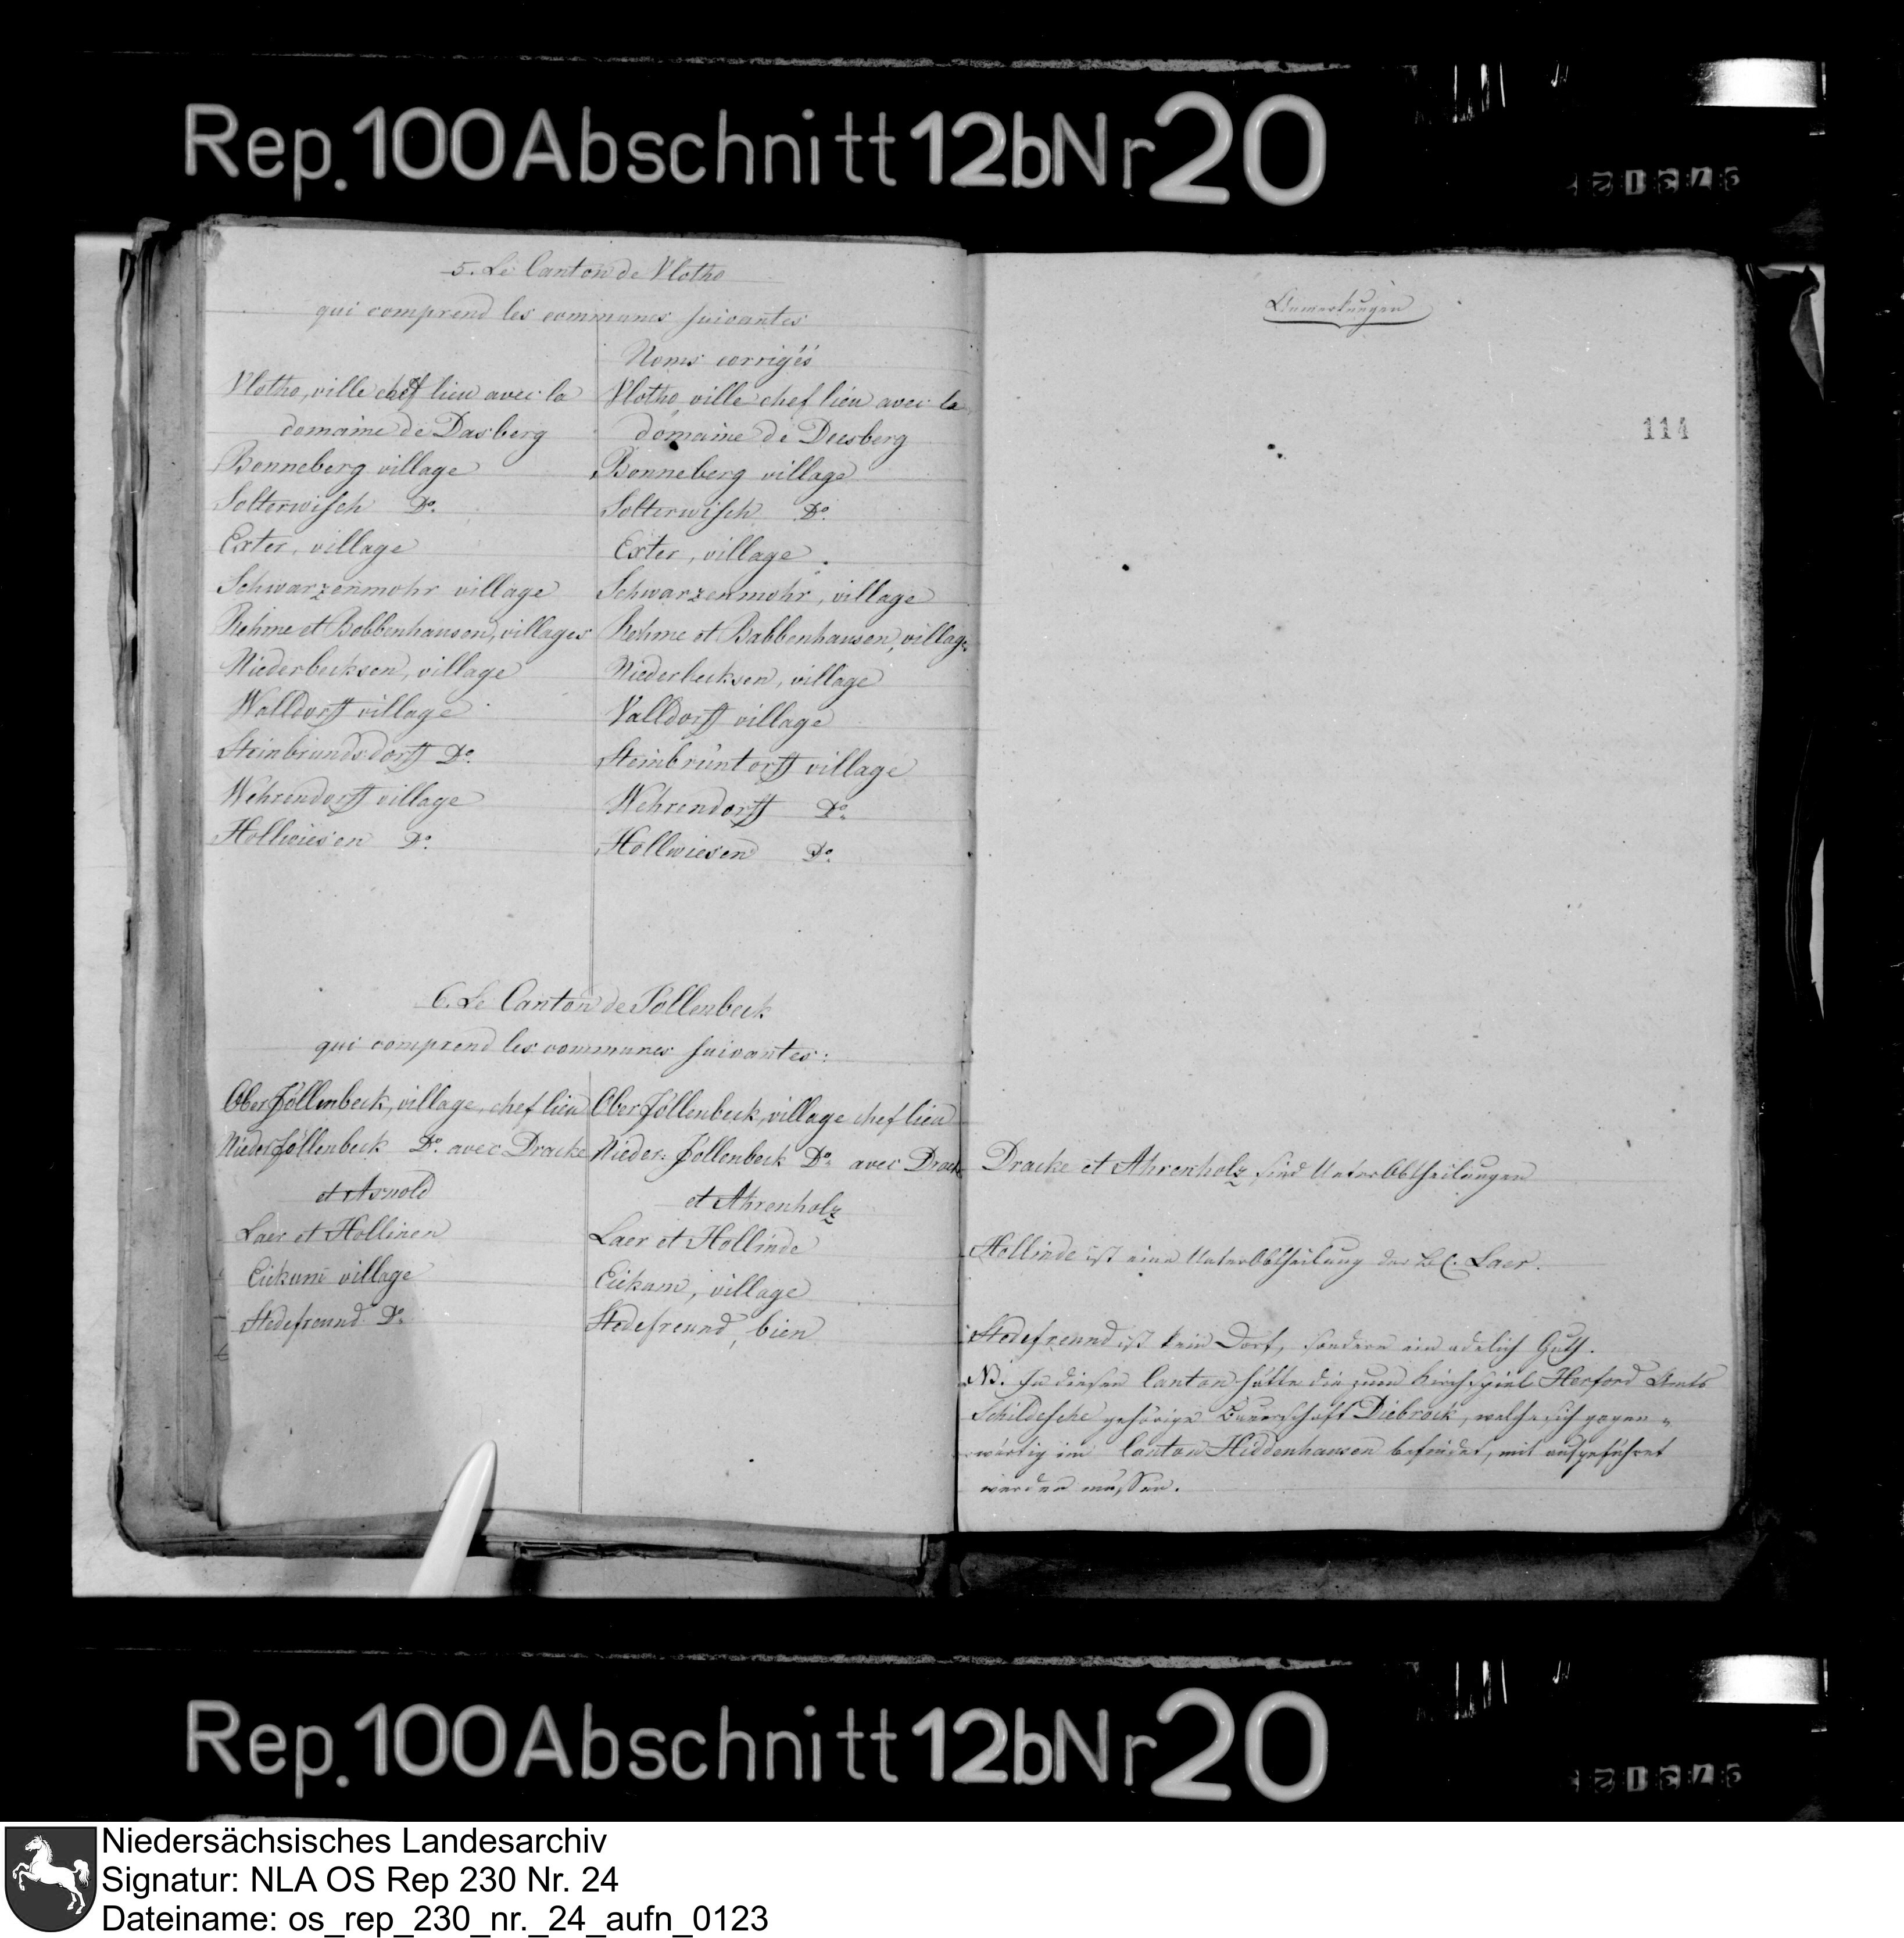 Rep. 100 Abschnitt 12b Nr 20
5. Le Canton de Vlotho
qui comprend les communes suivantes
Noms corrigés
Vlotho, ville chef lieu avec la
domaine de Dasberg
Bonneberg village
Solterwisch Do.
Exter, village
Schwarzenmohr village
Rehme et Bobbenhausen, villages
Niederbecksen, village
Walldorff village
Steinbrundsdorff Do.
Wehrendorff village
Hollwiesen Do.
Vlotho ville chef lieu avec le
domaine de Deesberg
Bonneberg village
Solterwisch Do.
Exter, village
Schwarzenmohr, village
Rehme et Babbenhausen, village
Niederbecksen, village
Valldorff village
Steinbrüntorff village
Wehrendorff Do.
Hollwiesen Do.
6. Le Canton de Jöllenbeck
qui comprend les communes suivantes:
Ober Jöllenbeck, village, chef lieu
Nieder Jöllenbeck Do. avec Dracke
et Arnold
Laer et Hollinen
Eickum village
Stedefreund Do.
Ober Jöllenbeck, village chef lieu
Nieder: Jöllenbeck Do. avec Dracke
et Ahrenholz
Laer et Hollinde
Eickum, village
Stedefreund, bien
Anmerkungen
114
Dracke et Ahrenholz sind Unterabtheilungen
Hollinde ist eine Unterabtheilung der B.C. Laer.
Stedefreund ist kein Dorf, sondern ein adelich Guth.
NB. In diesen Canton hätte die zum Kirchspiel Herford Amts
Schildesche gehörige Bauerschaft Diebrock, welche sich gegen-
wärtig im Canton Hiddenhausen befindet, mit aufgeführet
werden müssen.
Rep. 100 Abschnitt 12b Nr 20
Niedersächsisches Landesarchiv
Signatur: NLA OS Rep 230 Nr. 24
Dateiname: os_rep_230_nr._24_aufn_0123